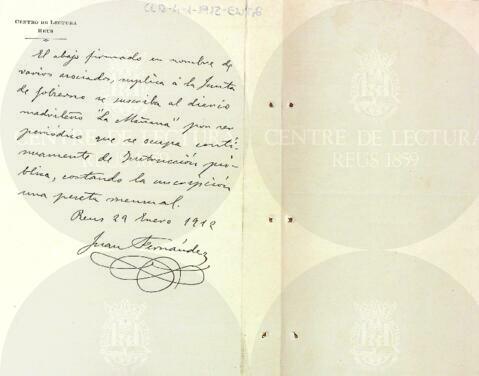 CENTRO DE LECTURA
REUS
El abajo firmado en nombre de
varios asociados, suplica á la Junta
de Gobierno se suscriba al diario
madrileño "La Mañana" por ser
periódico que se ocupa contí-
nuamente de Instrucción pú-
blica, contando la suscripción
una peseta mensual.
Reus 29 Enero 1912
Juan Fernández
CENTRE DE LECTURA
REUS 1859